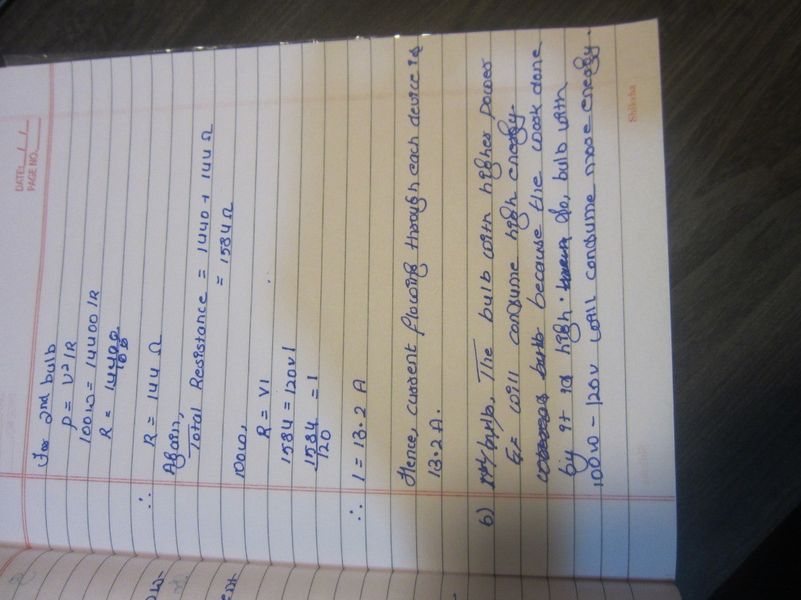 DATE: / /
PAGE NO.
For 2nd bulb
P = V²/R
100W = 14400/R
R = 14400
100
∴ R = 144 Ω
Again,
Total Resistance = 1440 + 144 Ω
= 1584 Ω
now,
R = VI
1584 = 120 V I
1584 = I
120
∴ I = 13.2 A
Hence, current flowing through each device is
13.2 A.
6) bulb, The bulb with higher power
will consume high energy
bulb because the work done
by it is high. So, bulb with
100W - 120V will consume more energy.
Shiksha